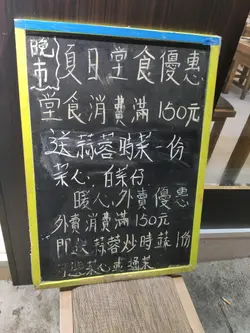 晚市
夏日堂食優惠
堂食消費滿150元
送蒜蓉時菜一份
菜心，白菜仔
暖心外賣優惠
外賣消費滿150元
即送蒜蓉炒時蔬1份
菜心或通菜